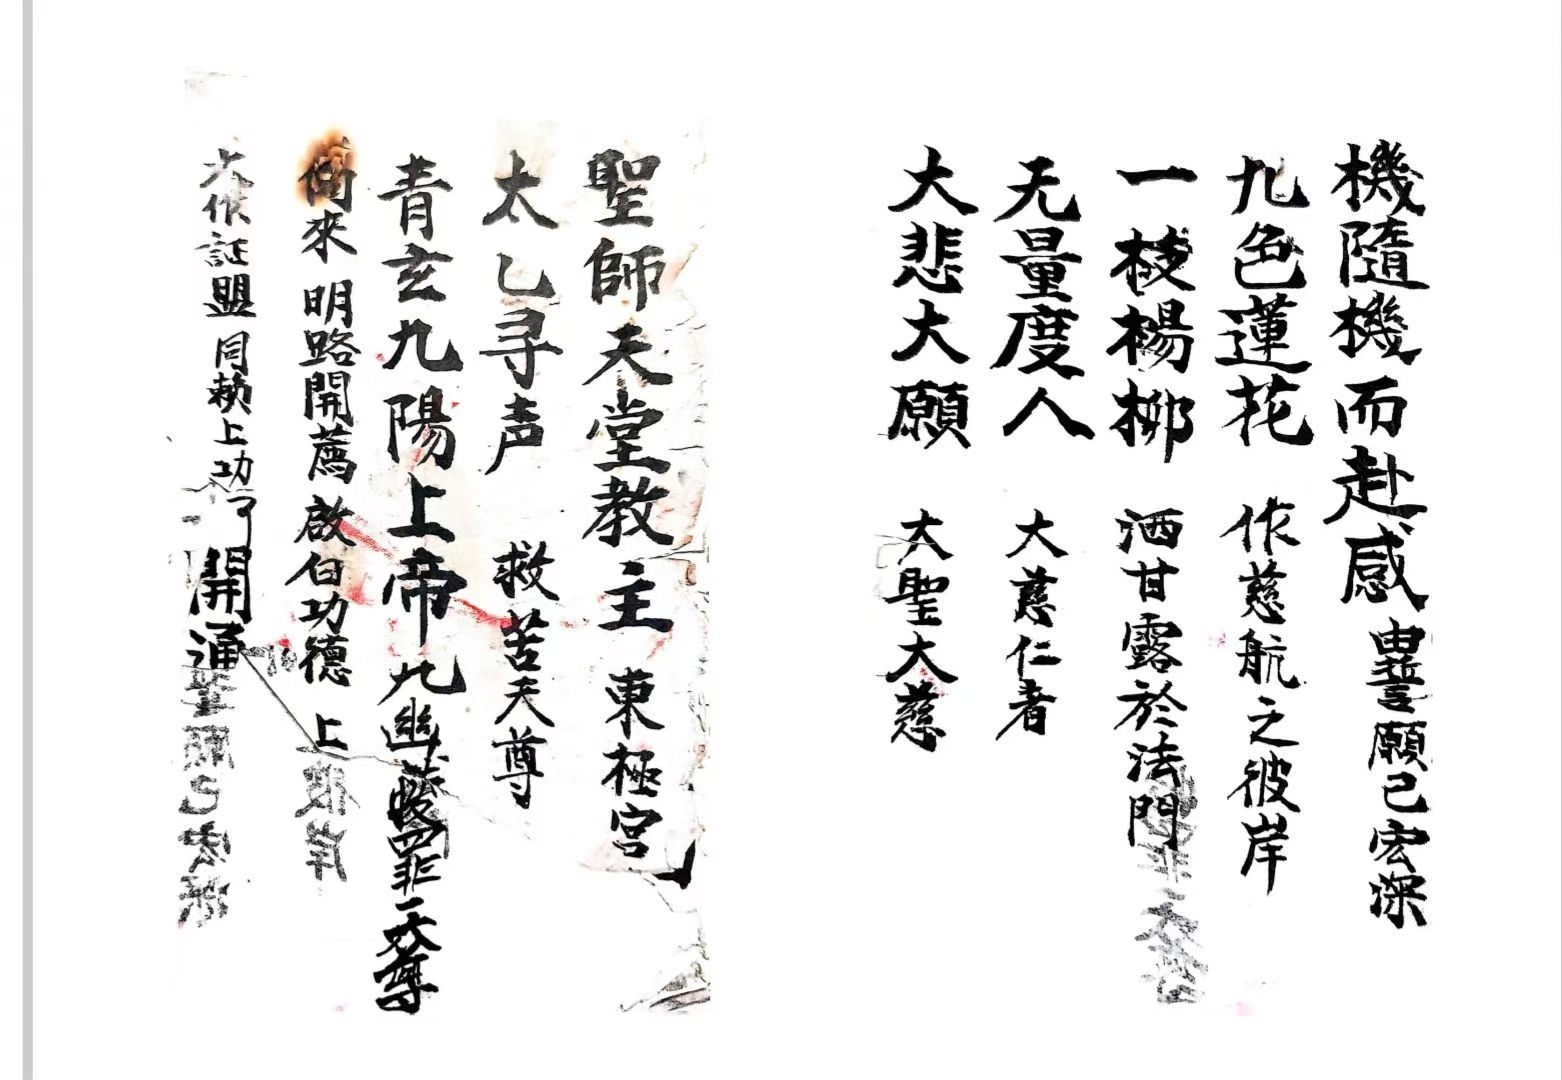 機隨機而赴感 願己宏深
九色蓮花 作慈航之彼岸
一枝楊柳 洒甘露於法門
无量度人 大慈仁者
大悲大願 大聖大慈
聖師天堂教主 東極宮
太乙寻声 救苦天尊
青玄九陽上帝 九幽拔罪天尊
向來 明路開薦 啟白功德 上
大作証盟 同賴上功 開通